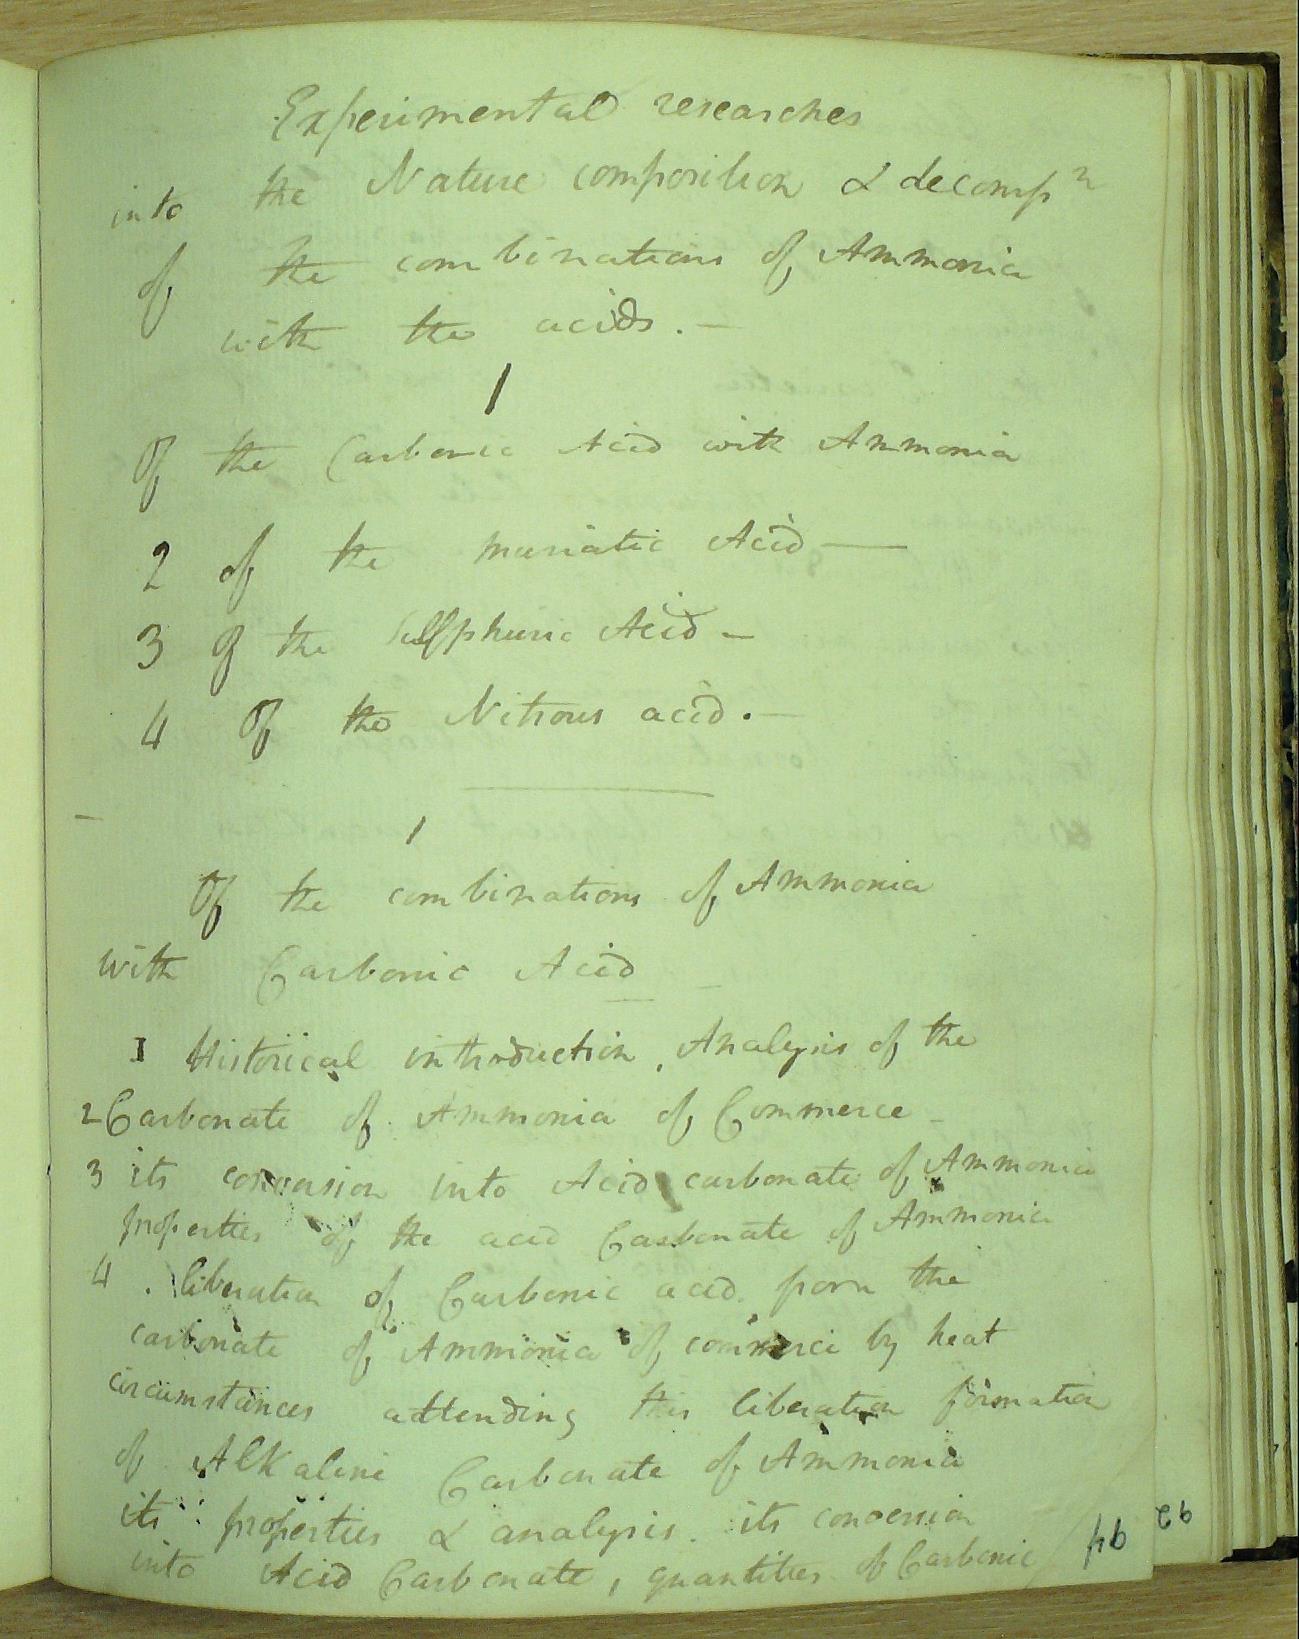 Experimental researches
into the Nature composition & decompn
of the combinations of Ammonia
with the acids. —
1
Of the Carbonic Acid with Ammonia
2 of the muriatic Acid —
3 Of the Sulphuric Acid —
4 Of the Nitrous acid. —
1
Of the combinations of Ammonia
with Carbonic Acid
1 Historical introduction, Analysis of the
2 Carbonate of Ammonia of Commerce —
3 its conversion into Acid carbonate of Ammonia
properties of the acid Carbonate of Ammonia
4. liberation of Carbonic acid from the
carbonate of Ammonia of commerce by heat
circumstances attending this liberation formation
of Alkaline Carbonate of Ammonia
its properties & analysis. its conversion
into Acid Carbonate, quantities of Carbonic
94
92